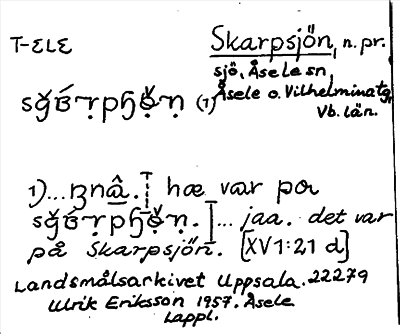 T-ELE
Skarpsjön, n. pr.
sjö, Åsele sn,
(1) Åsele o. Vilhelmina tg,
Vb. län.
1)... hæ var på
... jaa. det var
på Skarpsjön. [XV1:21 d]
Landsmålsarkivet Uppsala. 22279
Ulrik Eriksson 1957. Åsele
Lappl.